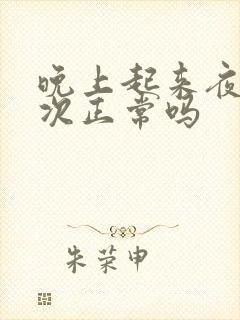 晚上起来夜
次正常吗
朱荣申